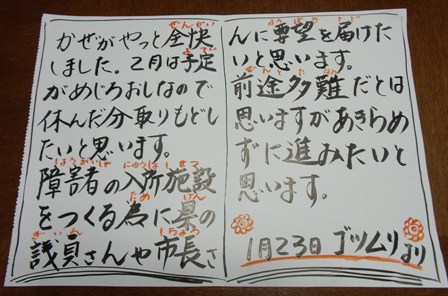 かぜがやっと全快
しました。2月は予定
がめじろおしなので
休んだ分取りもどし
たいと思います。
障害者の入所施設
をつくる為に県の
議員さんや市長さ
んに要望を届けた
いと思います。
前途多難だとは
思いますがあきらめ
ずに進みたいと
思います。
1月23日 ゴツムリより